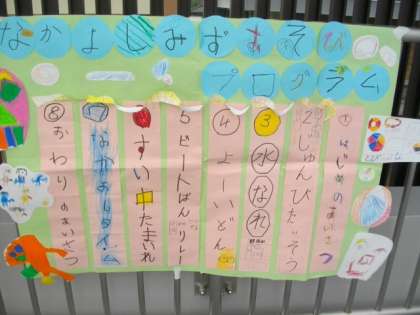 なかよしみずあそび
プログラム
①はじめのあいさつ
2じゅんびたいそう
③水なれ
④よーいどん
5ビートばんリレー
すい中たまいれ
⑦なかよしタイム
⑧おわりのあいさつ